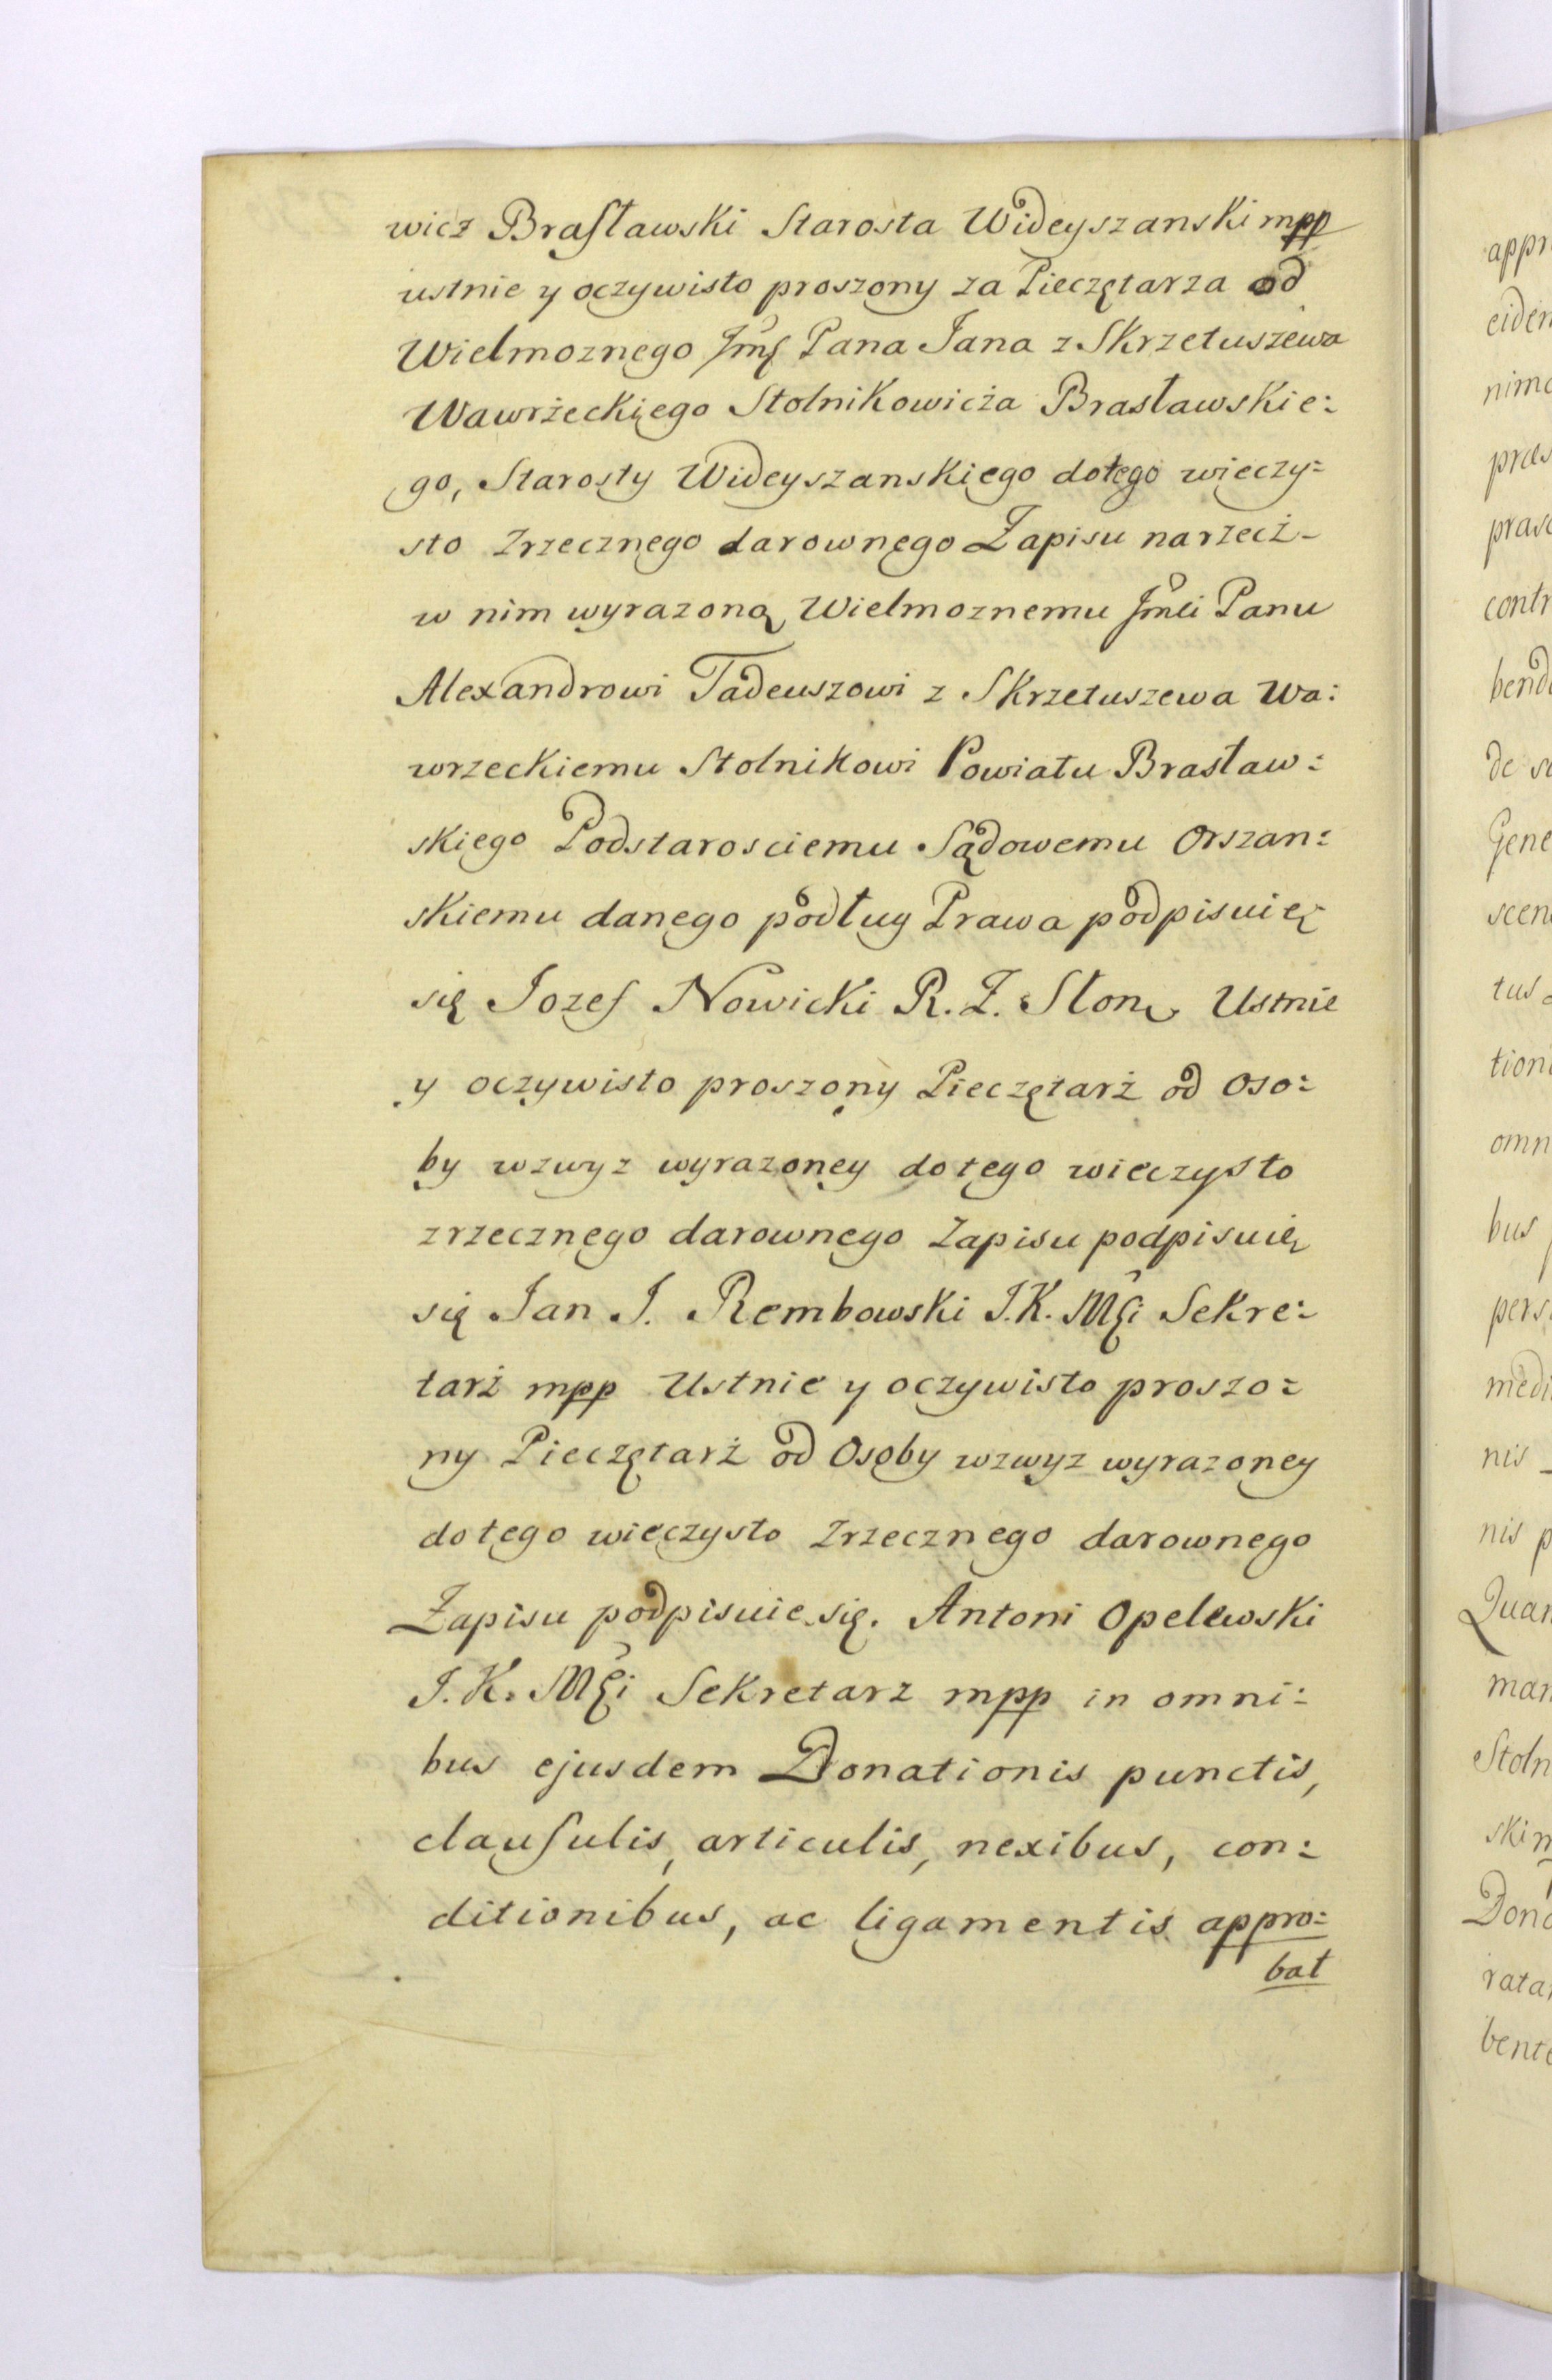 wicz Brasławski Starosta Wideyszanski mpp
ustnie y oczywisto proszony za Pieczętarza od
Wielmoznego Jmś Pana Jana z Skrzetuszewa
Wawrżeckięgo Stolnikowicża Brasławskie:
go, Starosty Wideyszanskięgo dotego więczy:
sto Zrzecznęgo darownęgo Zapisu narzecż-
w nim wyrazoną Wielmoznemu Jmći Panu
Alexandrowi Tadeuszowi z Skrzetuszewa Wa:
wrzeckiemu Stolnikowi Powiatu Brasław:
skięgo Podstarosciemu Sądowemu Orszan:
skiemu danęgo podług Prawa podpisuię
się Jozef Nowicki R. Z. Słon Ustnie
y oczywisto proszony Pieczętarż od Oso:
by wzwyz wyrazoney dotęgo wieczysto
zrzecznęgo darownęgo Zapisu podpisuię
się Jan J. Rembowski J. K. Mći Sekre:
tarż mpp Ustnie y oczywisto proszo:
ny Pieczętarż od Osoby wzwyz wyrazoney
dotęgo więczysto Zrzecznęgo darownęgo
Zapisu podpisuie się. Antoni Opelewski
J. K. Mći Sekretarz mpp in omni:
bus ejusdem Donationis punctis,
clausulis, articulis, nexibus, con:
ditionibus, ac ligamentis appro:
bat
appr
eiden
pras
contr
bend
Gene
scen
tus
tion
omn
bus
pers
medi
nis
nis p
Quan
man
Stoln
skim
Dona
rata
bent